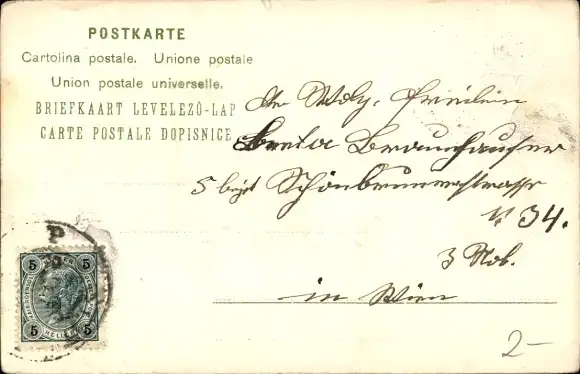 POSTKARTE
Cartolina postale. Unione postale
Union postale universelle.
BRIEFKAART LEVELEZŐ-LAP
CARTE POSTALE DOPISNICE
Wolg. Fräulein
Berta Braunhauser
5 bezirk Schönbrunnerstrasse
N 34.
3 Stock.
in Wien
P
5 5
5 5
HELLER
2-